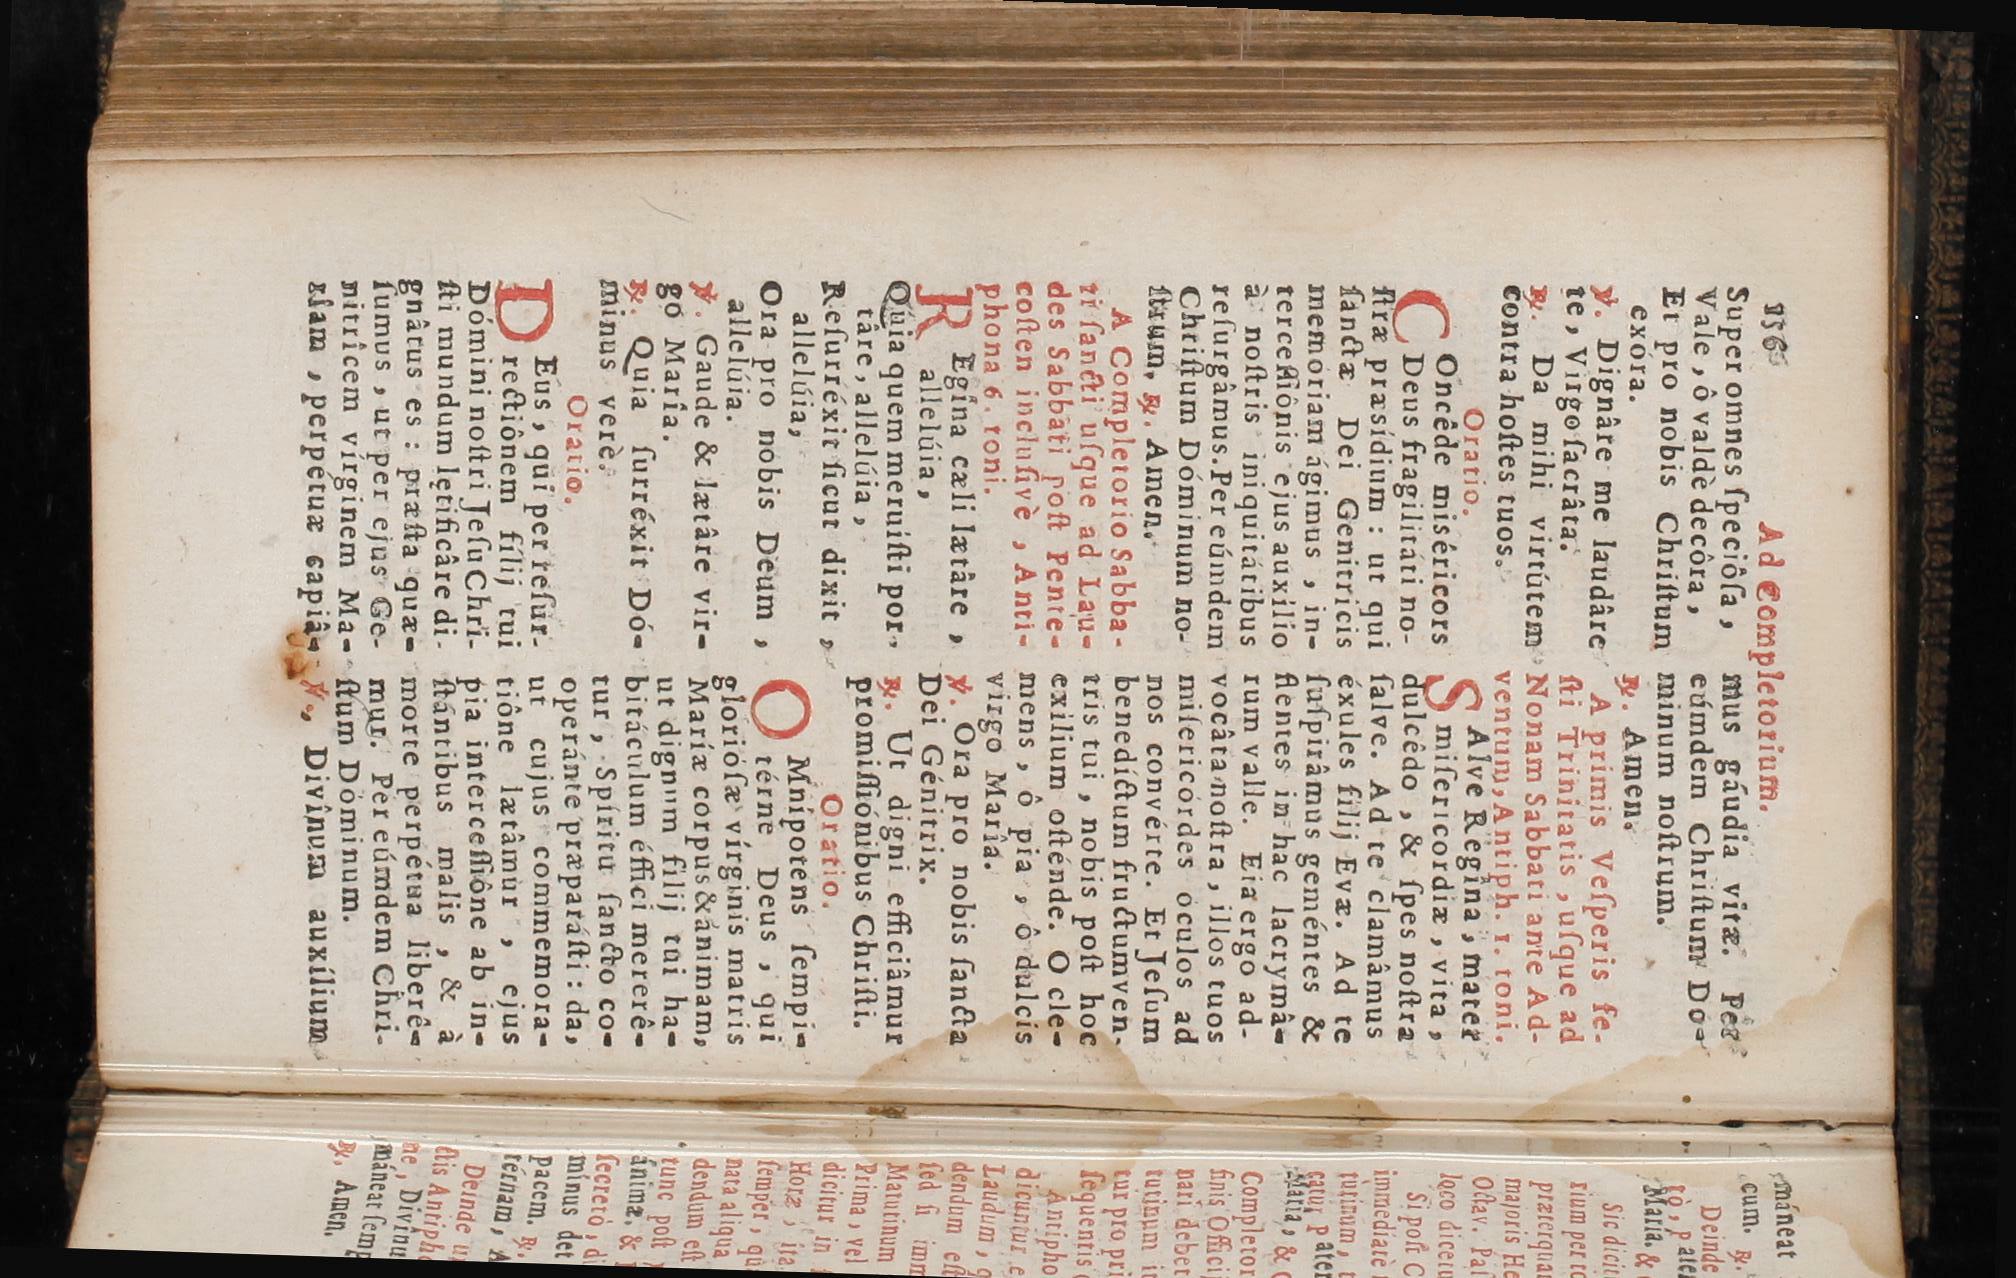 156
Ad Completorium.
Super omnes ſpeciôſa,
Vale, ô valdè decôra,
Et pro nobis Chriſtum
exóra.
℣. Dignâre me laudâre
te, Virgo ſacrâta.
℟. Da mihi virtútem
contra hoſtes tuos.
Oratio.
COncêde miséricors
Deus fragilitáti no-
ſtræ præsídium : ut qui
ſanctæ Dei Genitricis
memoriam ágimus, in-
terceſſiônis ejus auxilio
à noſtris iniquitátibus
reſurgâmus. Per eúmdem
Chriſtum Dóminum no-
ſtrum. ℟. Amen.
A Completorio Sabba-
ti ſancti uſque ad Lau-
des Sabbati poſt Pente-
coſten incluſivè, Anti-
phona 6. toni.
REgîna cæli lætâre,
allelúia,
Quia quem meruiſti por-
târe, allelúia,
Reſurréxit ſicut dixit,
allelúia,
Ora pro nobis Deum,
allelúia.
℣. Gaude & lætâre vir-
go Marîa.
℟. Quia ſurréxit Dó-
minus verè.
Oratio.
DEus, qui per reſur-
rectiônem fílij tui
Dómini noſtri Jeſu Chri-
ſti mundum lętificâre di-
gnâtus es : præſta quæ-
ſumus, ut per ejus Ge-
nitrîcem vírginem Ma-
ríam, perpétuæ capiâ-
mus gáudia vitæ. Per
eúmdem Chriſtum Dó-
minum noſtrum.
℟. Amen.
A primis Veſperis fe-
ſti Trinitatis, uſque ad
Nonam Sabbati ante Ad-
ventum, Antiph. 1. toni.
SAlve Regîna, mater
miſericordiæ, vita,
dulcêdo, & ſpes noſtra
ſalve. Ad te clamâmus
éxules filij Evæ. Ad te
ſuſpirâmus geméntes &
flentes in hac lacrymâ-
rum valle. Eia ergo ad-
vocâta noſtra, illos tuos
miſericórdes oculos ad
nos convérte. Et Jeſum
benedíctum fructum ven-
tris tui, nobis poſt hoc
exilium oſténde. O cle-
mens, ô pia, ô dulcis
virgo Marîa.
℣. Ora pro nobis ſancta
Dei Génitrix.
℟. Ut digni efficiâmur
promiſſiónibus Chriſti.
Oratio.
OMnipotens ſempi-
térne Deus, qui
glorióſæ vírginis matris
Maríæ corpus & ánimam,
ut dignum filij tui ha-
bitáculum éffici mererê-
tur, Spíritu ſancto co-
operánte præparáſti : da,
ut cujus commemora-
tiône lætâmur, ejus
pia interceſſiône ab in-
ſtántibus malis, & à
morte perpétua liberê-
mur. Per eúmdem Chri-
ſtum Dóminum.
℣. Divînum auxílium
máneat
cum. ℟.
Deinde
Maria. &
Sic dicit
præterqua
majoris He
Octav. Paſ
loco dicetu
Si poſt C
immediatè
tutinum,
catur Pater
Maria, &
Completor
finis Offici
nari debet
tutinum
tur pro pri
ſequentis
Antipho
dicuntur e
Laudum,
dendum eſt
ſed ſi imm
Matutinum
Prima, vel
dicitur in
Horæ, ita
ſemper,
nata aliqua
dendum eſt
tunc poſt
ánimæ. &
ſecretò, di
minus det
pacem. ℟.
térnam, A
Deinde
ctis Antipho
ne, Divinu
máneat ſemp
℟. Amen.